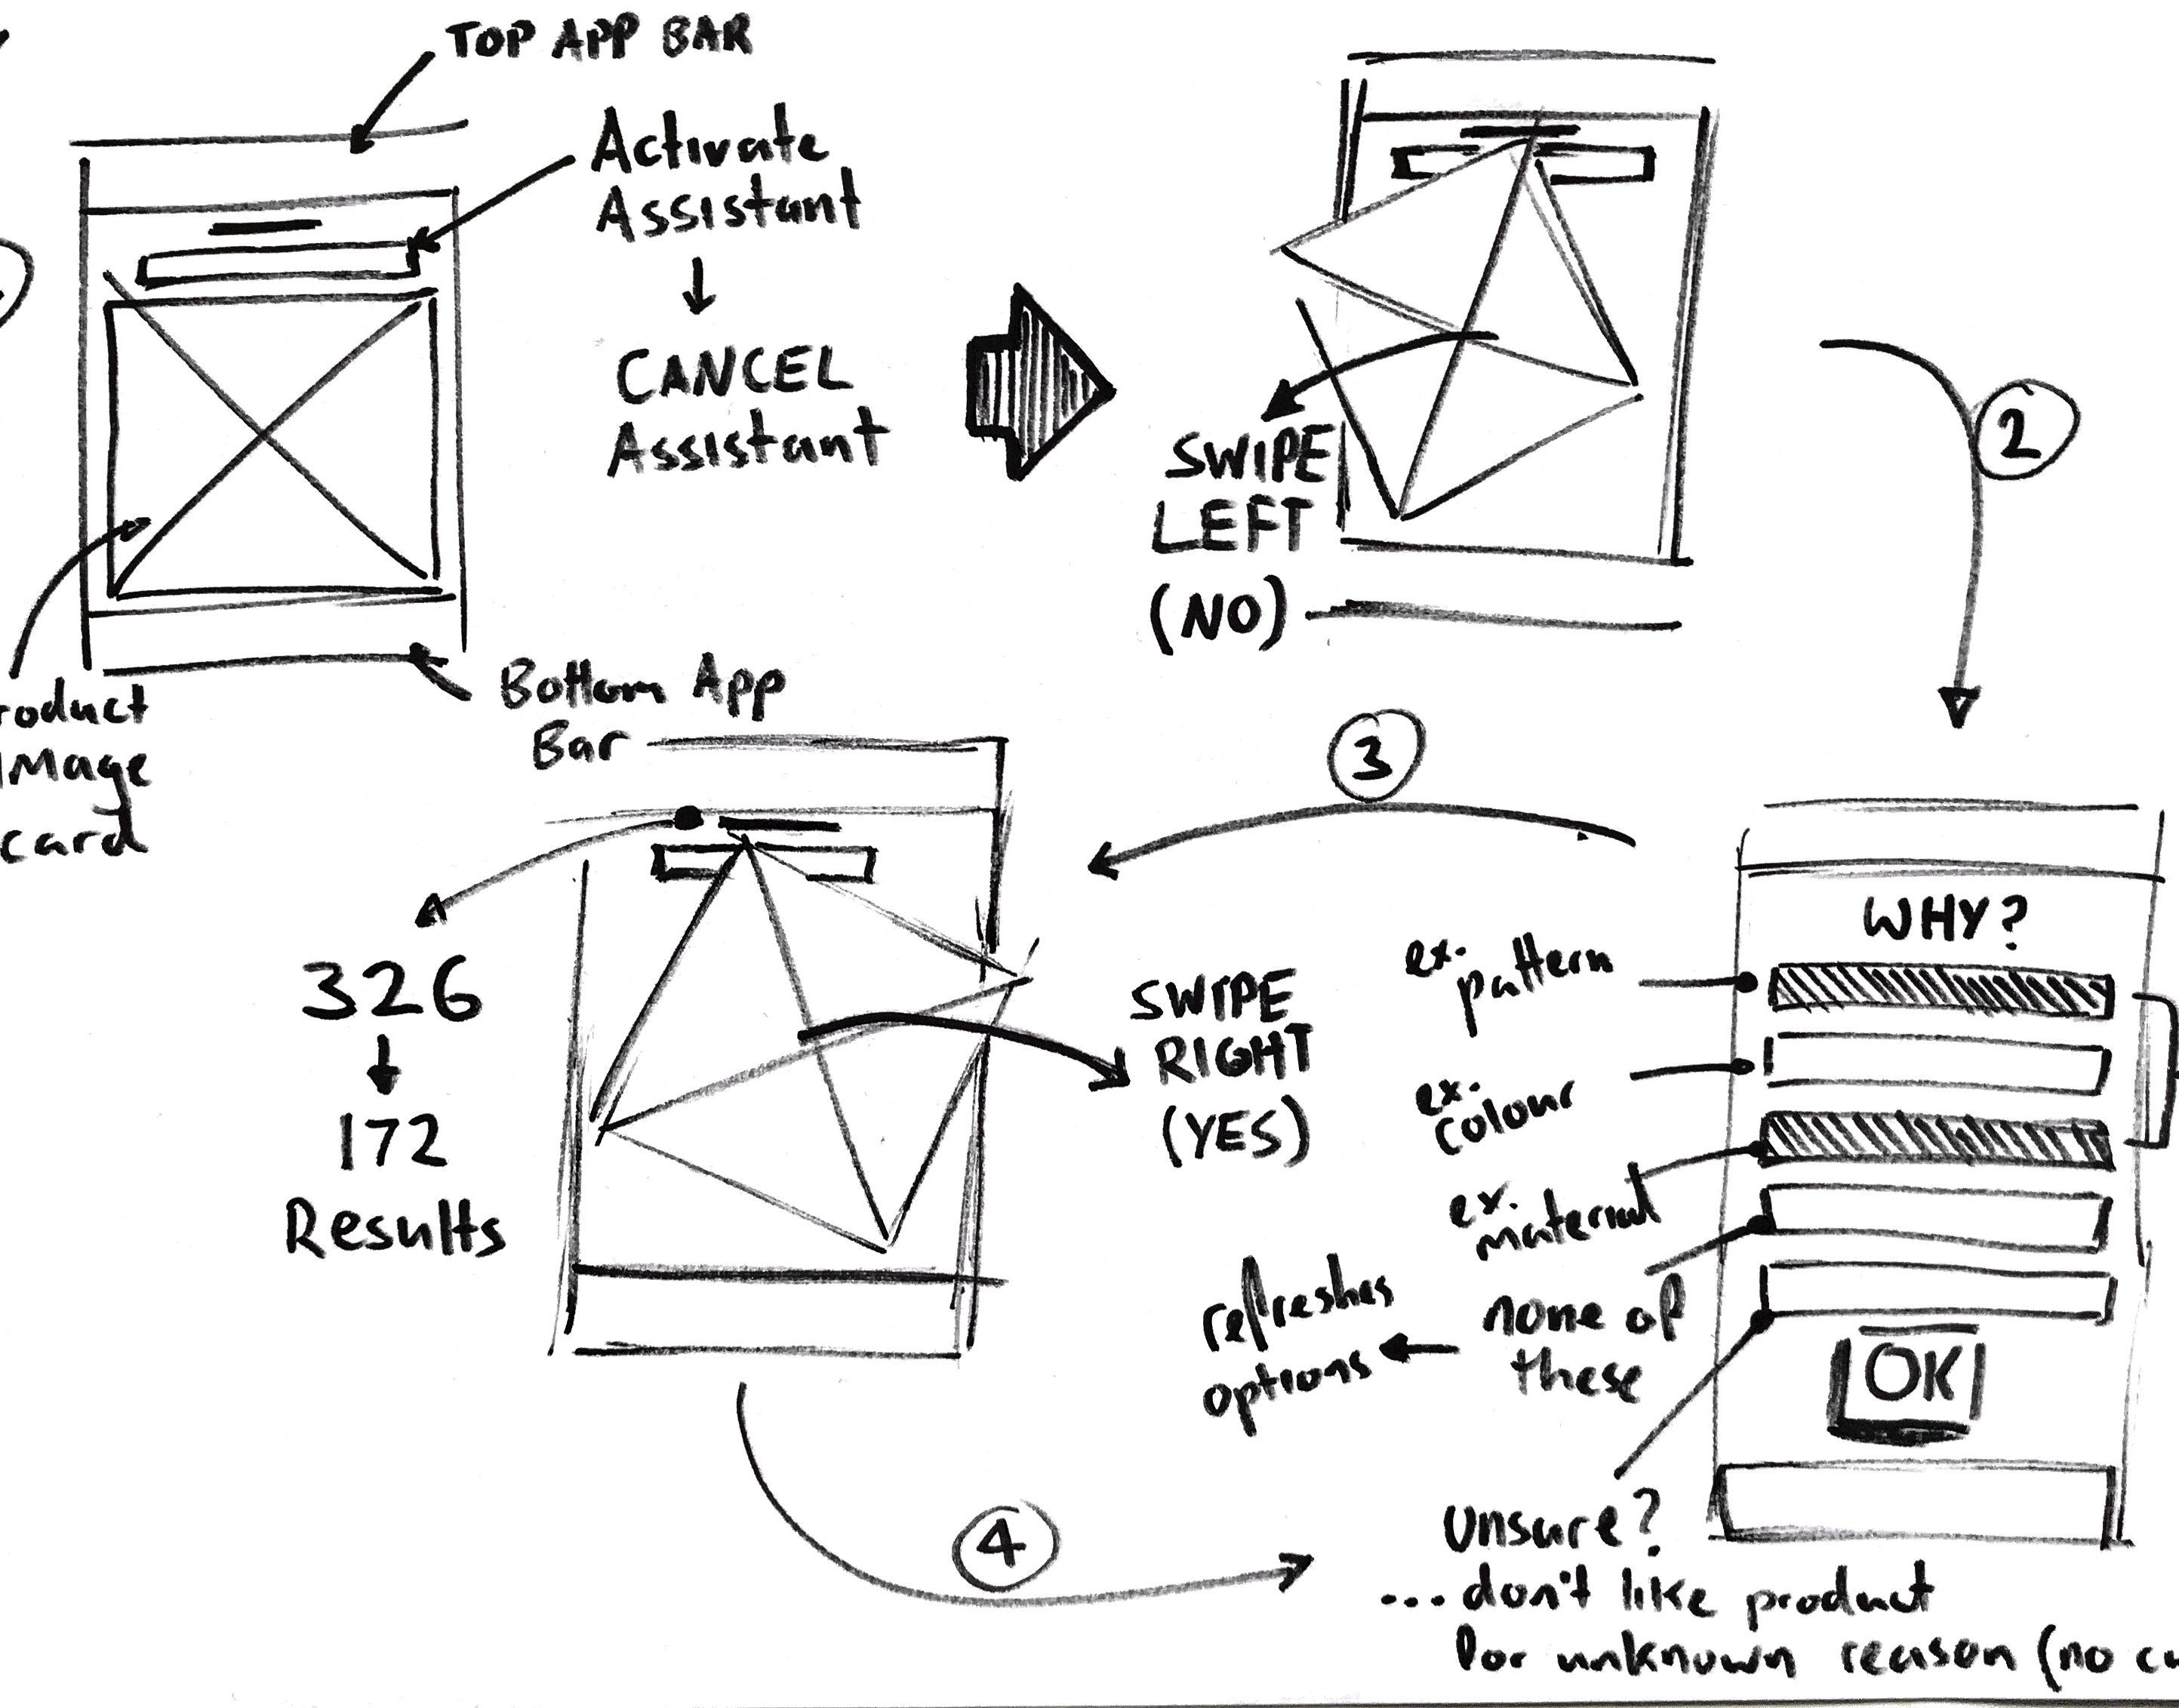 TOP APP BAR
Activate
Assistant
CANCEL
Assistant
Bottom App
Bar
roduct
image
card
SWIPE
LEFT
(NO)
2
3
WHY?
ex.
pattern
ex.
colour
ex.
material
none of
these
refreshes
options
OK
Unsure?
...don't like product
for unknown reason (no
326
172
Results
SWIPE
RIGHT
(YES)
4